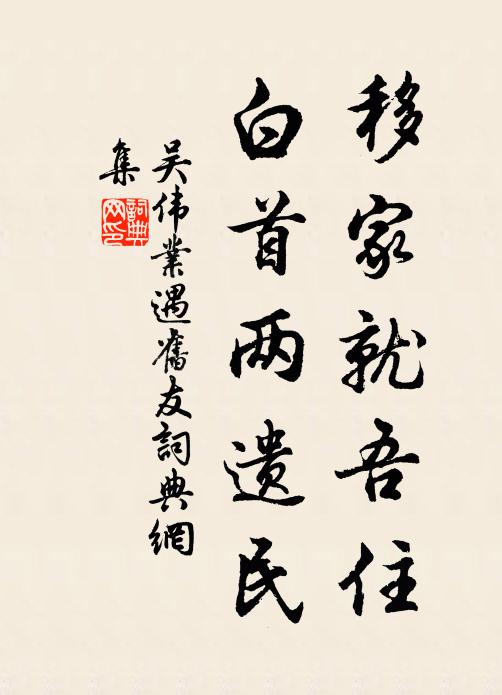 移家就吾住
白首两遗民
吴伟業遇舊友詞典網
集
詞典網印